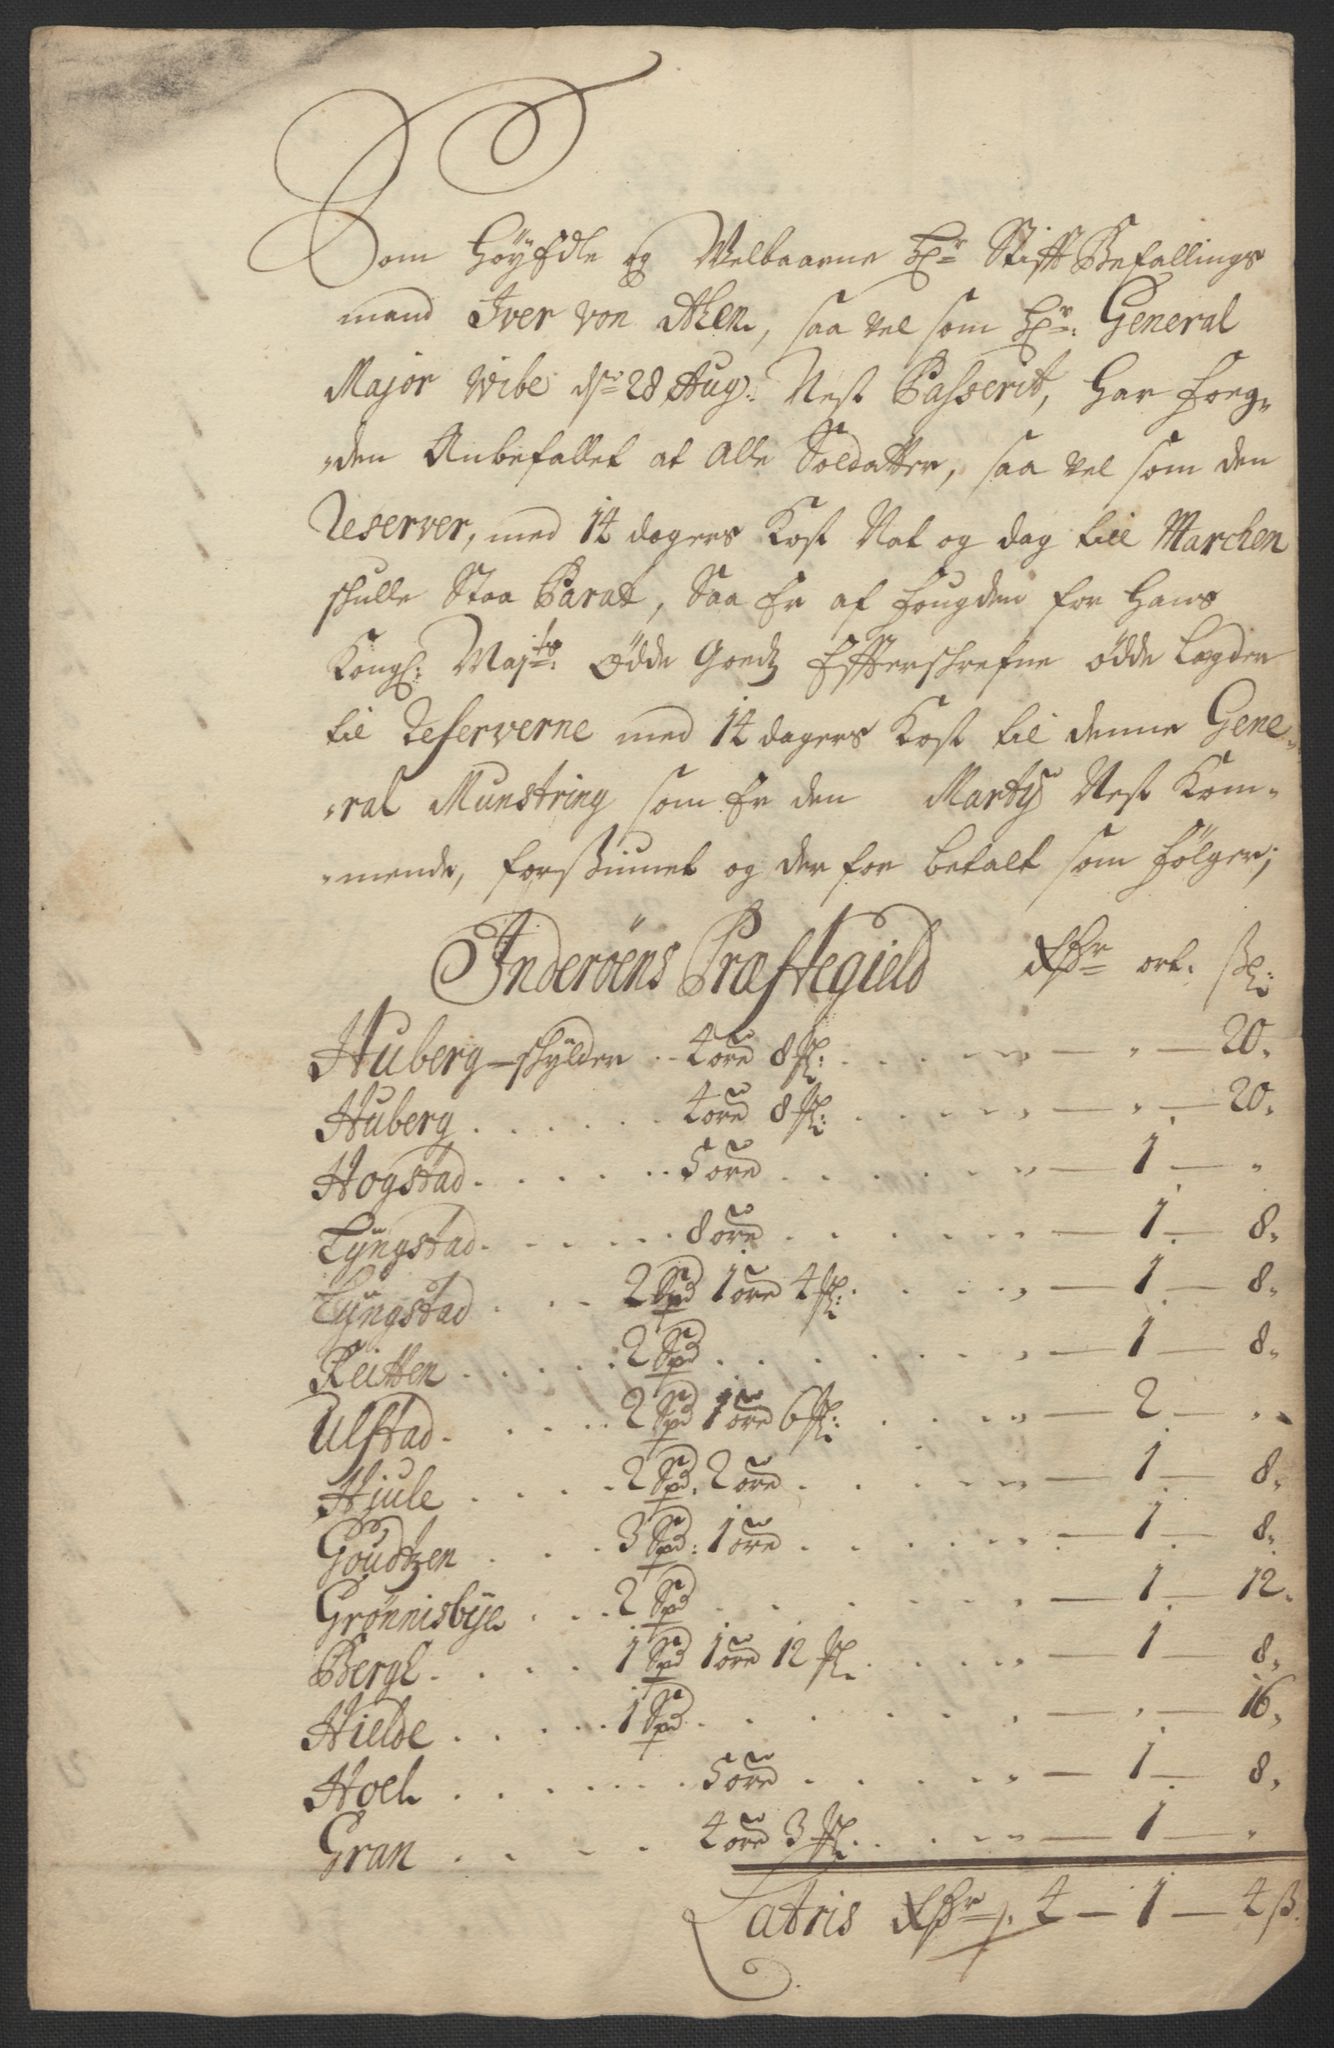 Som Höyædle og Welbaarne Hr Stifft Befallings
mand Iver von Ahen, saa vel som Hr: General
Major Wibe dn 28 Aug: Nest Passerit, har foug-
den Anbefallet at Alle Soldatter, saa vel som den
Reserver, med 14 dagers Kost Nat og dag till Marchen
skulle Staa Parat, Saa Er af fougden for Hans
Kongl: Majts: Ödde Goedtz Effterschrefne ödde Legder
til Reserverne med 14 dagers Kost til denne Gene-
ral Munstring som Er den Marty Nest Kom-
mende, forskiunet og der for betalt som følger;
Inderöens Præstegield Rdr ort: sk:
Huberg-skylder .. 4 øre 8 sl: . . . . . - " - 20,
Huberg . . . . . . 4 øre 8 sl: . . . . . - " - 20,
Hogstad . . . . . . 5 øre . . . . . . - 1 - "
Lyngstad . . . . . . 8 øre . . . . . . - 1 - 8,
Lyngstad . . . 2 Spd 1 øre 4 sl: . . . . - 1 - 8,
Reitten . . . . . 2 Spd . . . . . . . - 1 - 8,
Ulstad . . . . . 2 Spd 1 øre 6 sl: . . . . - 2 - "
Hjule . . . . 2 Spd. 2 øre . . . . . - 1 - 8,
Goudtzen . . . 3 Spd: 1 øre . . . . . - 1 - 8,
Grönnisbye . . . 2 Spd . . . . . . . - 1 - 12,
Bergl . . . . 1 Spd 1 øre 12 sl . . . . - 1 - 8,
Hielde . . . . . 1 Spd . . . . . . . - " - 16,
Hoel . . . . . . 5 øre . . . . . - 1 - 8,
Gran . . . . 4 øre 3 sl . . . . - 1 - "
Latris Rdr 4 - 1 - 4 s.